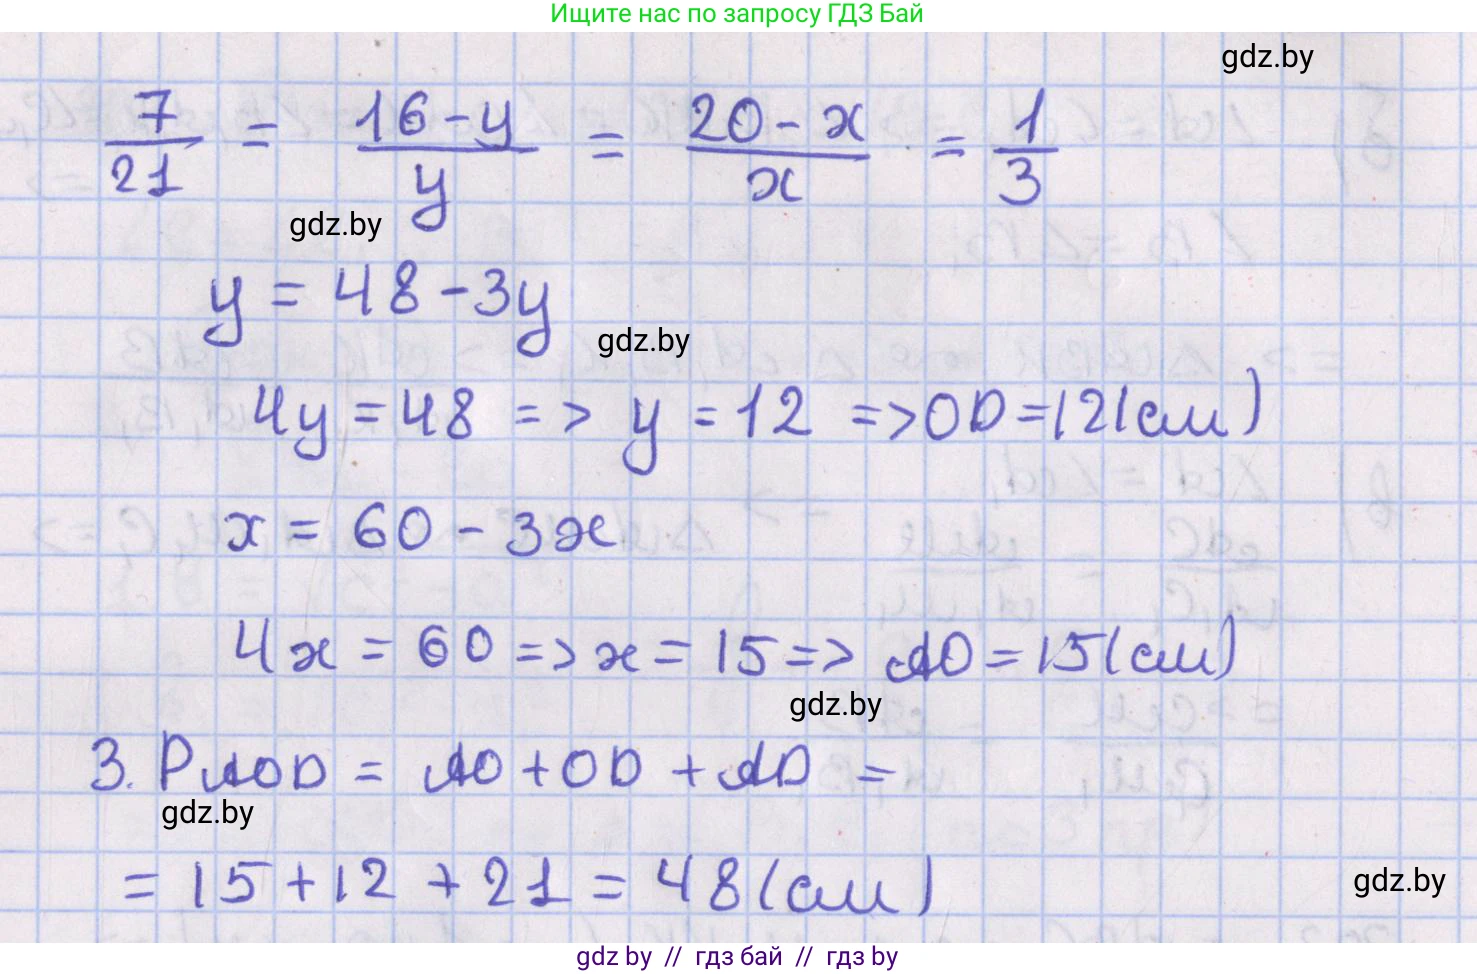 Ищите нас по запросу ГДЗ Бай
gdz.by
7/21 = (16-y)/y = (20-x)/x = 1/3
gdz.by
y = 48-3y
gdz.by
4y = 48 => y = 12 => OD = 12(см)
x = 60 - 3x
4x = 60 => x = 15 => AO = 15(см)
gdz.by
3. PAOD = AO + OD + AD =
gdz.by
= 15 + 12 + 21 = 48(см)
gdz.by
gdz by // гдз бай // гдз by